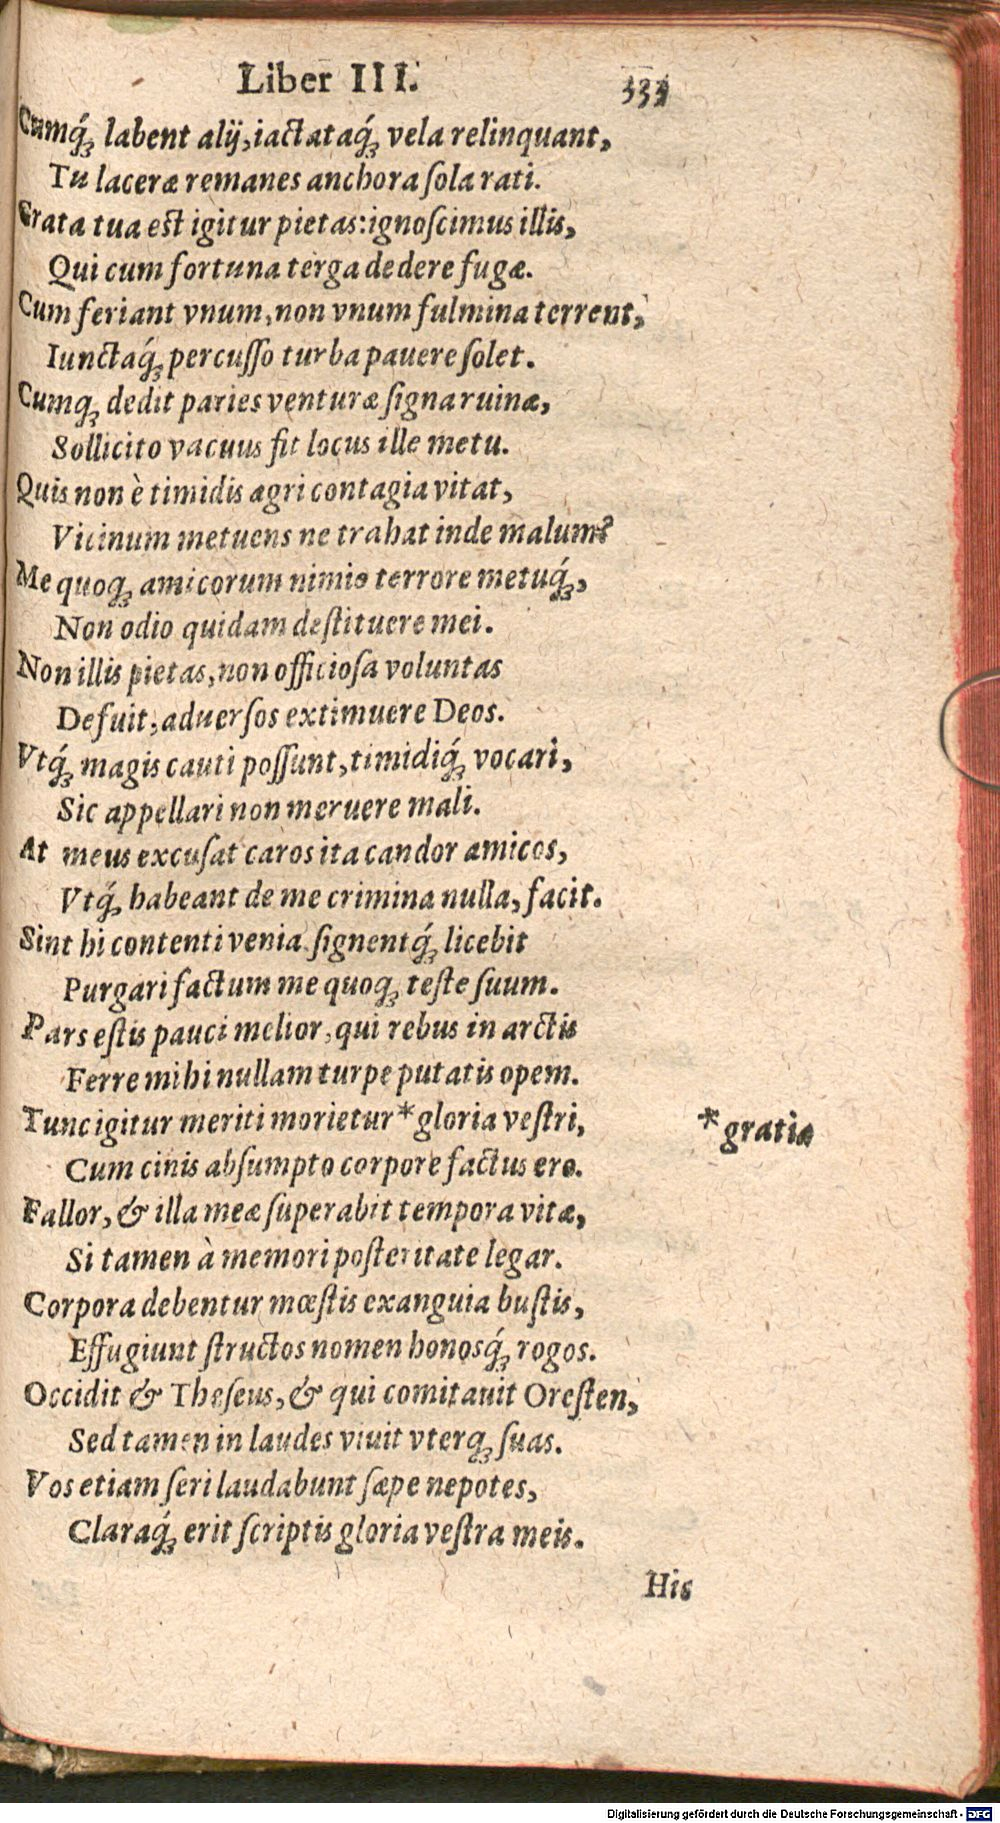 Liber III. 333
Cumq́; labent alij, iactataq́; vela relinquant,
Tu laceræ remanes anchora ſola rati.
Grata tua est igitur pietas: ignoſcimus illis,
Qui cum fortuna terga dedere fugæ.
Cum feriant vnum, non vnum fulmina terrent,
Iunctaq́; percuſſo turba pauere ſolet.
Cumq; dedit paries venturæ ſigna ruinæ,
Sollicito vacuus fit locus ille metu.
Quis non è timidis agri contagia vitat,
Vicinum metuens ne trahat inde malum?
Me quoq; amicorum nimio terrore metuq́;,
Non odio quidam deſtituere mei.
Non illis pietas, non officioſa voluntas
Defuit, aduerſos extimuere Deos.
Vtq́; magis cauti poſſunt, timidiq́; vocari,
Sic appellari non meruere mali.
At meus excuſat caros ita candor amicos,
Vtq́; habeant de me crimina nulla, facit.
Sint hi contenti venia ſignentq́; licebit
Purgari factum me quoq; teſte ſuum.
Pars eſtis pauci melior, qui rebus in arctis
Ferre mihi nullam turpe putatis opem.
Tunc igitur meriti morietur * gloria veſtri,
* gratia
Cum cinis abſumpto corpore factus ero.
Fallor, & illa meæ ſuperabit tempora vitæ,
Si tamen à memori poſteritate legar.
Corpora debentur mœſtis exanguia buſtis,
Effugiunt ſtructos nomen honosq́; rogos.
Occidit & Theſeus, & qui comitauit Oreſten,
Sed tamen in laudes viuit vterq; ſuas.
Vos etiam ſeri laudabunt ſæpe nepotes,
Claraq́; erit ſcriptis gloria veſtra meis.
His
Digitalisierung gefördert durch die Deutsche Forschungsgemeinschaft - DFG